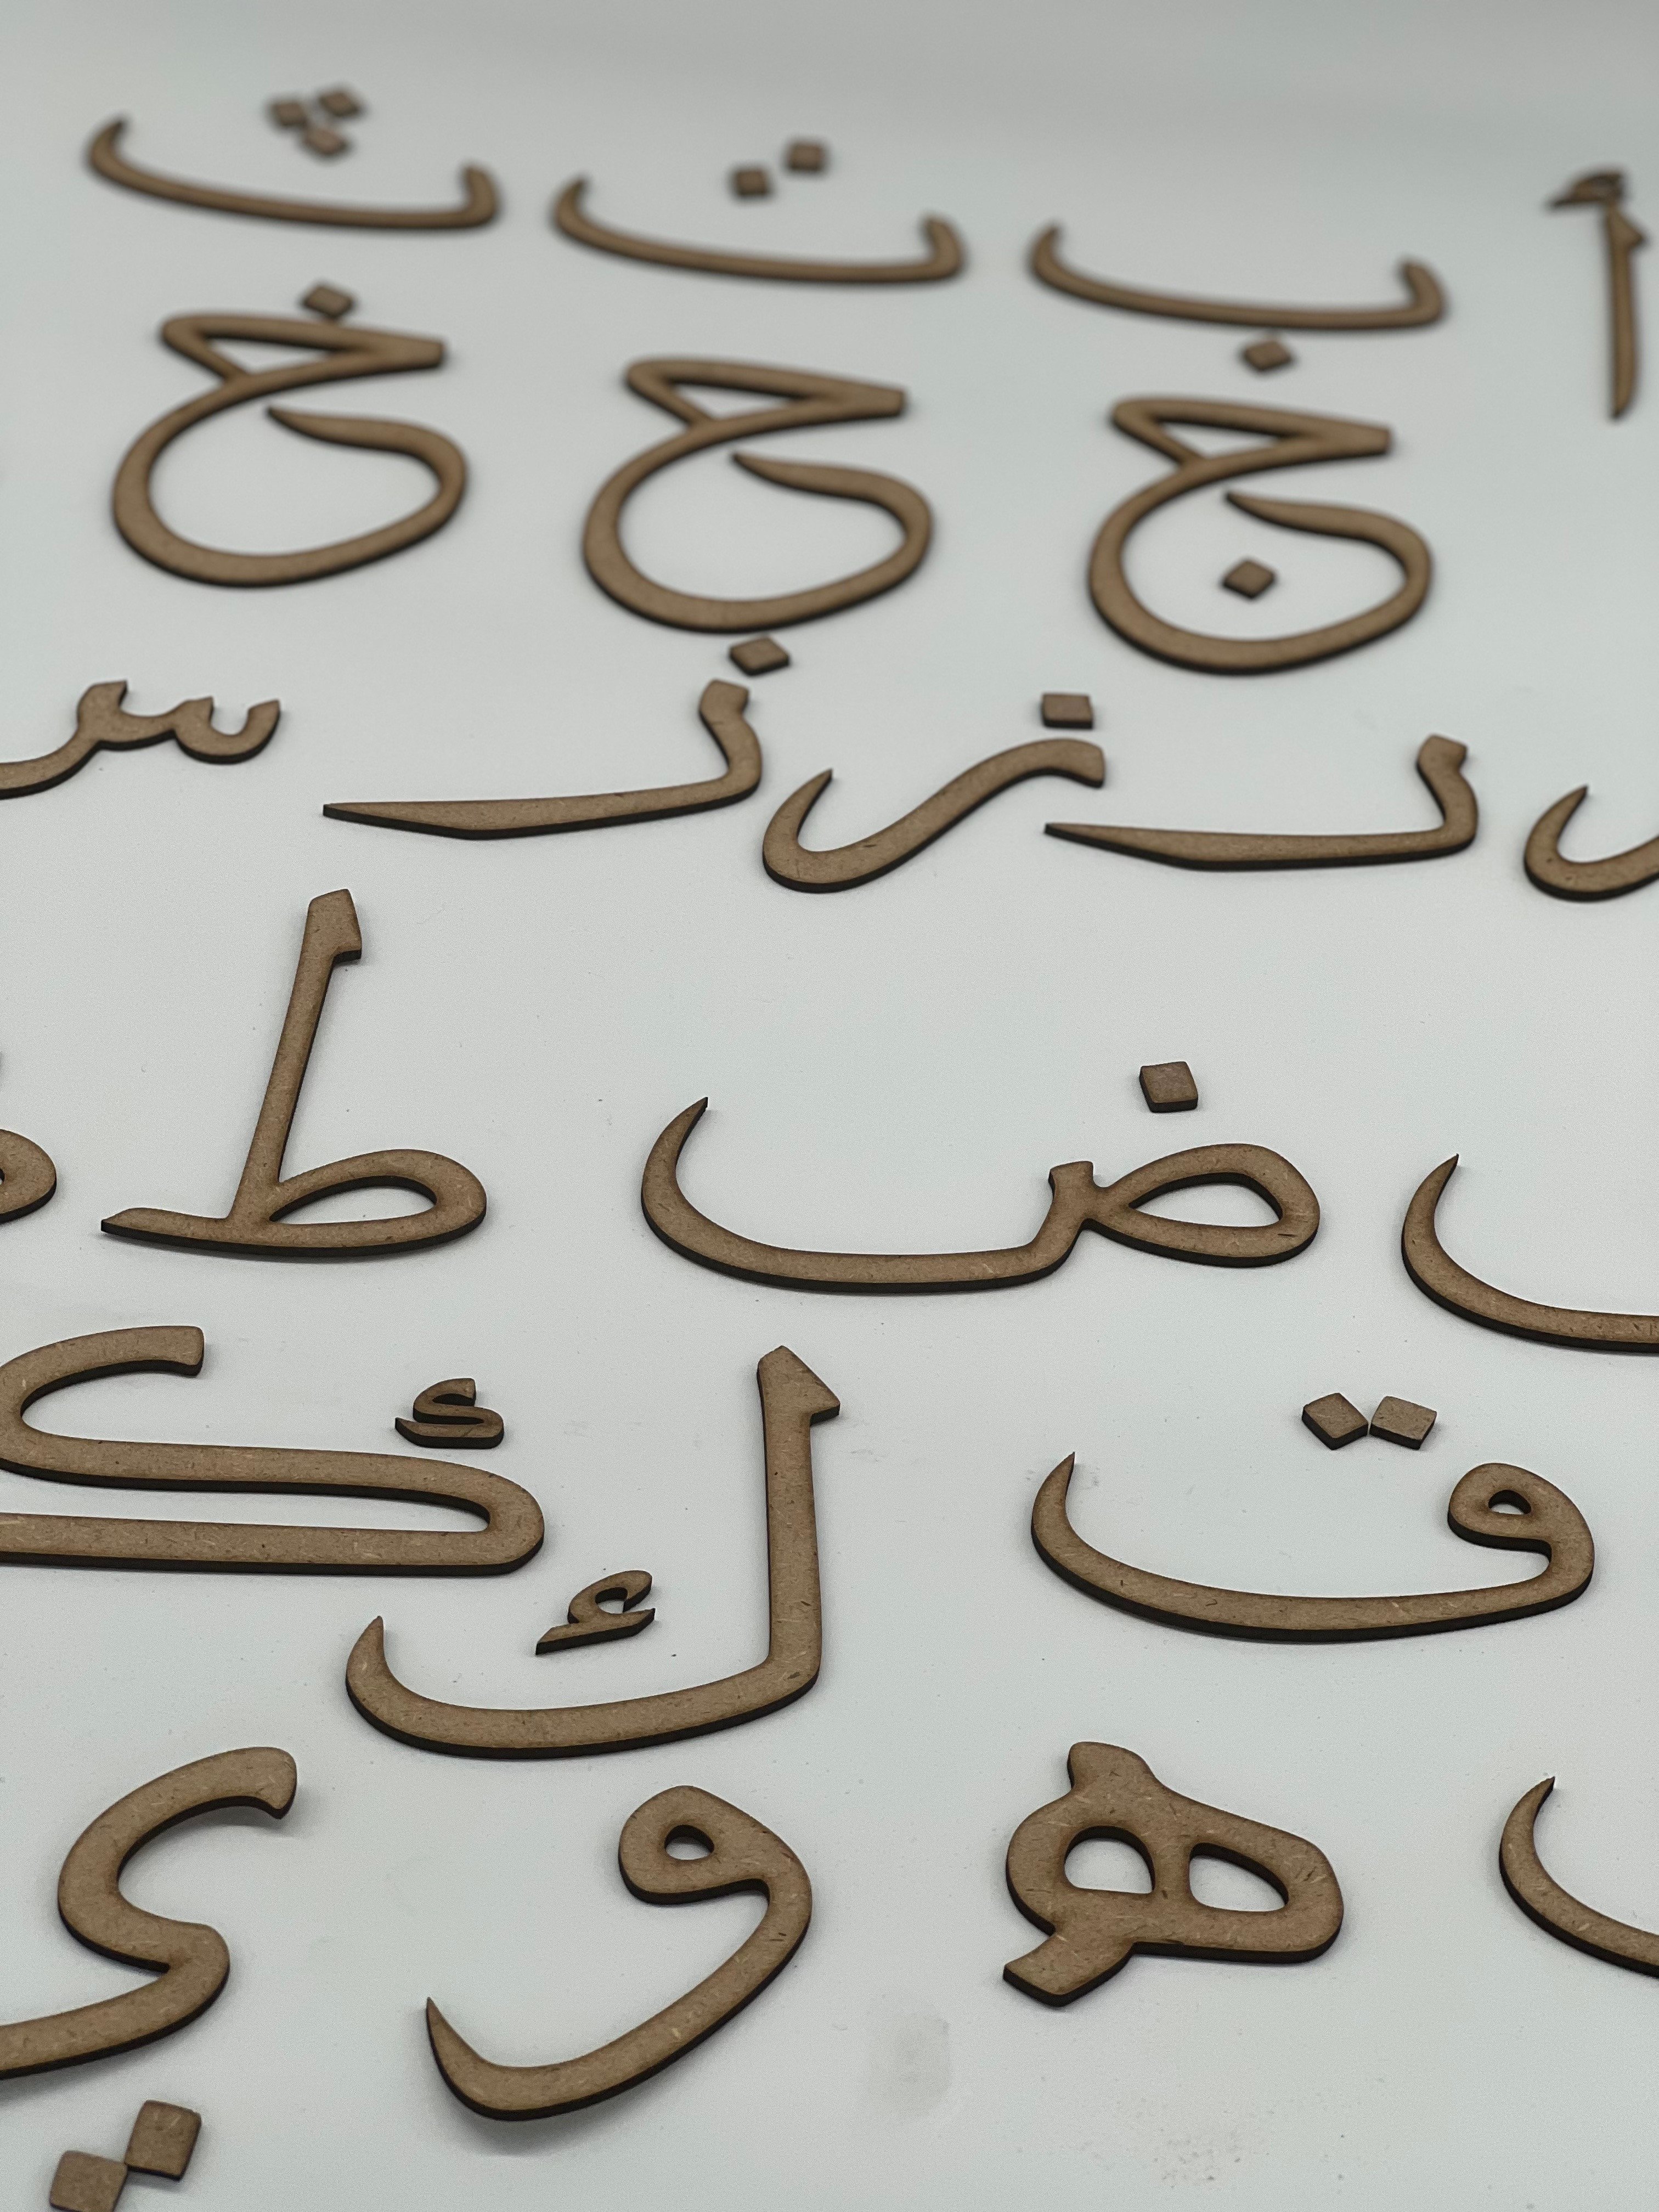 أ ب ت ث
ج ح خ
ر ز ز س
ض ط
ق ك ك
ه و ي